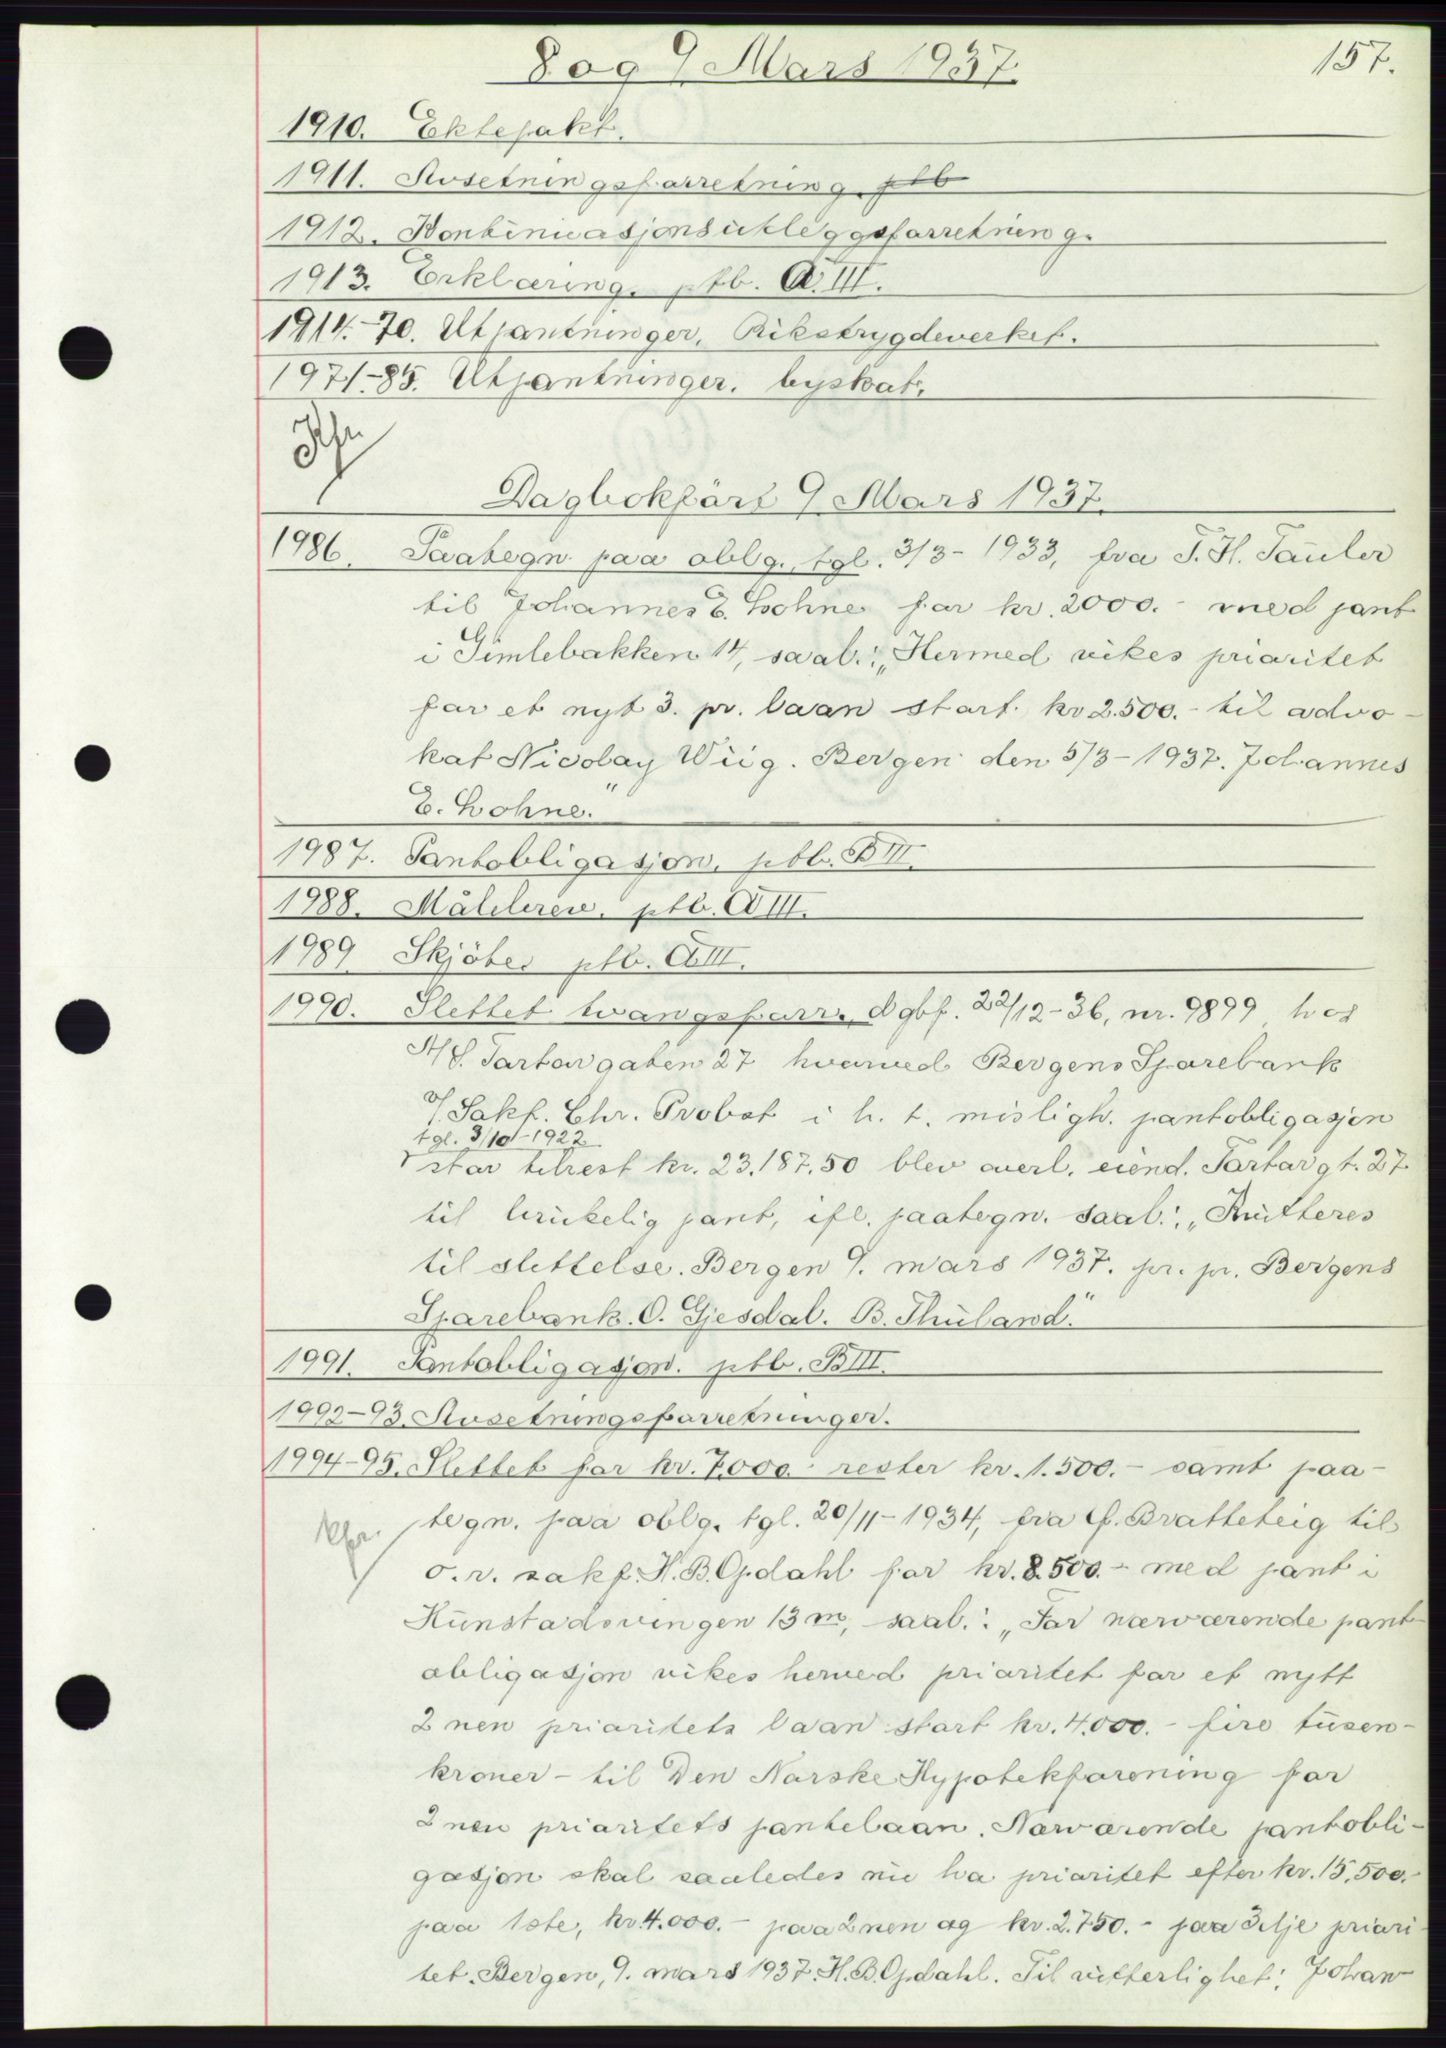 8 og 9 Mars 1937.
157.
1910. Ektepakt.
1911. Avsetningsforretning. ptb
1912. Kontinuasjonsutleggsforretning.
1913. Erklæring. ptb. A.III.
1914.-70. Utpantninger, Rikstrygdeverket.
1971.-85. Utpantninger. byskat.
Dagbokfört 9 Mars 1937.
1986. Paategn. paa oblg., tgl. 3/3-1933, fra T. H. Tauler
til Johannes E. Lohne for kr. 2000.- med pant
i Gimlebakken 14, saal.: „Hermed vikes prioritet
for et nyt 3. pr. laan stort kr 2.500.- til advo-
kat Nicolay Wiig. Bergen den 5/3-1937. Johannes
E. Lohne."
1987. Pantobligasjon, ptb. B III.
1988. Målebrev. ptb. A III.
1989. Skjöte, ptb. A III.
1990. Slettet tvangsforr., dgbf. 22/12-36, nr. 9899 hos
A/S. Tartargaten 27 hvorved Bergens Sparebank
v/ Sakf. Chr. Probst i h. t. misligh. pantobligasjon
tgl. 3/10-1922
stor tilrest kr. 23.187,50 blev overl. eiend. Tartargt. 27
til brukelig pant, ifl. paategn. saal.: „Kvitteres
til slettelse. Bergen 9. mars 1937. pr. pr. Bergens
Sparebank. O. Gjesdal. B. Thuland."
1991. Pantobligasjon. ptb. B III.
1992-93. Avsetningsforretninger.
1994-95. Slettet for kr. 7.000.- rester kr. 1.500.- samt paa-
tegn. paa oblg. tgl. 20/11-1934, fra Bratteteig til
o.r. sakf. H. B. Opdahl for kr. 8.500.- med pant i
Kunstadsvingen 13 m, saal.: „For nærværende pant
obligasjon vikes herved prioritet for et nytt
2 nen prioritets laan stort kr. 4.000.- fire tusen-
kroner - til Den Norske Hypotekforening for
2 nen prioritets pantelaan. Nærværende pantobli-
gasjon skal saaledes nu ha prioritet efter kr. 15.500.-
paa 1ste, kr. 4.000.- paa 2nen og kr. 2.750.- paa 3dje priori
tet. Bergen, 9. mars 1937. H. B. Opdahl. Til vitterlighet: Johan